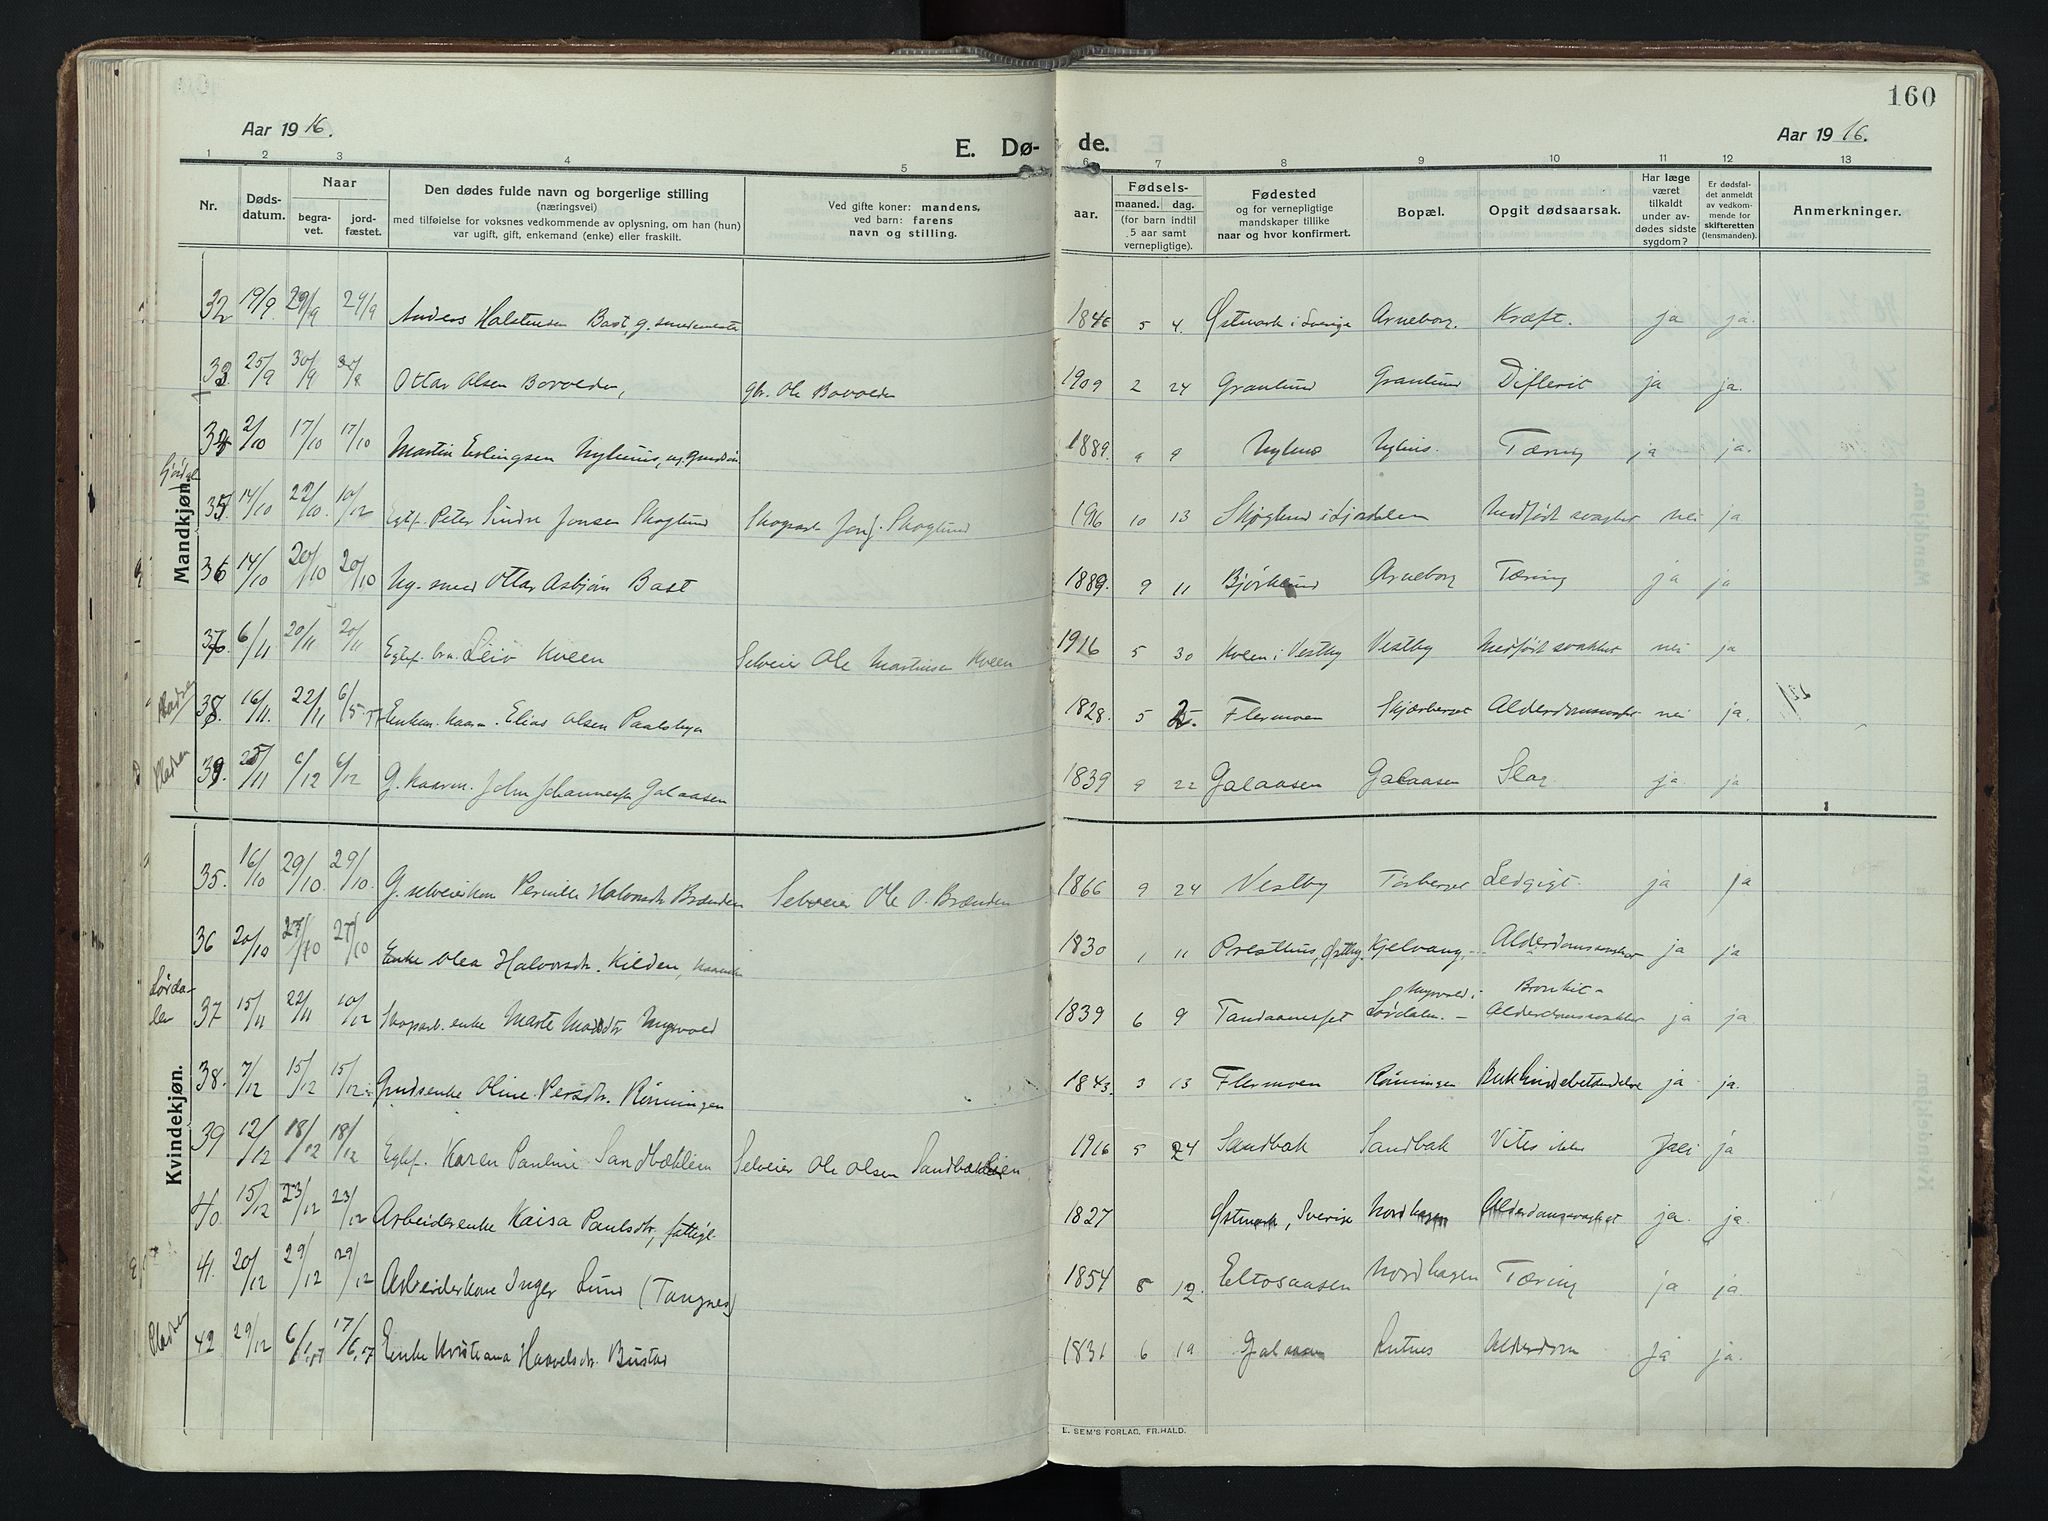 160
Aar 1916.
E. Dø-
de.
Aar 1916.
1 2 3 4 5 6 7 8 9 10 11 12 13
Nr.
Døds-
datum.
Naar
begra-
vet.
jord-
fæstet.
Den dødes fulde navn og borgerlige stilling
(næringsvei)
med tilføielse for voksnes vedkommende av oplysning, om han (hun)
var ugift, gift, enkemand (enke) eller fraskilt.
Ved gifte koner: mandens,
ved barn: farens
navn og stilling.
aar.
Fødsels-
maaned. dag.
(for barn indtil
5 aar samt
vernepligtige).
Fødested
og for vernepligtige
mandskaper tillike
naar og hvor konfirmert.
Bopæl.
Opgit dødsaarsak.
Har læge
været
tilkaldt
under av-
dødes sidste
sygdom?
Er dødsfal-
det anmeldt
av vedkom-
mende for
skifteretten
(lensmanden).
Anmerkninger.
Mandkjøn.
32 19/9 29/9 24/9 Anders Halstensen Bast, g. smedemester 1846 5 4. Østmark i Sverige Arneborg. Kræft. ja ja.
33. 25/9 30/9 Ottar Olsen Bovolden, gbr. Ole Bovolden 1909 2 24 Granlund Granlund Difterit ja ja.
34 2/10 17/10 17/10 Martin Erlingsen Nyhuus, ug. 1889. 9 9 Nyhus Nyhus. Tæring ja ja.
35 14/10 22/10 10/12 Egtef. Peter Sindre Jonsen Skoglund Skogarb. Skoglund 1916 10 13 Skoglund i Ljørdalen Medfødt svaghet nei ja
36 14/10 20/10 20/10 Ug. smed Ottar Asbjørn Bast 1889. 9 11 Bjørklund Arneborg Tæring ja ja
37 6/11 20/11 20/11 Egtef. Leiv Kveen Selveier Ole Martinsen Kveen 1916 5 30 Kveen i Vestby Vestby Medfødt svakhet nei ja
Pladsen
38. 16/11. 22/11 6/5 Enkem. kaarm. Elias Olsen Paalsbyn 1828. 5 Flermoen Skjærberget nei ja.
Pladsen
39. 25/11 6/12 6/12 G. kaarm. John Johannessen Galaasen 1839 9 22 Galaasen Galaasen Slag ja ja
Kvindekjøn.
35. 16/10 29/10. 29/10. G. selveierkone Pernille Halvorsdtr. Brænden Selveier Ole O. Brænden 1866 9 24 Vestby Torberget Ledgigt. ja ja
36 20/10 27/10 27/10 Enke Olea Halvorsdtr. Kilden, 1830 1 11 Presthus, Østby. Kjelvang. Alderdomssvakhet ja ja
Lørda-
len
37 15/11 22/11 10/12 Skogarb. enke Marte Nygvold 1839 6 9 Tandaaneset Nygvold i Lørdalen. Bronkit - Alderdomssvakhet ja ja
38. 7/12 15/12 15/12 Gmdsenke Oline Persdtr. Rønningen 1843. 3 13 Flermoen Rønningen Bukhindebetændelse ja ja.
39 12/12 18/12 18/12 Egtef. Karen Pauline Sandbæklien Selveier Ole Olsen Sandbæklien 1916 5 24 Sandbæk Sandbæk Vites ikke ja
40 15/12 23/12 23/12 Arbeiderenke Kaisa Paulsdtr, fattigl. 1827 Østmark, Sverige Nordhagen Alderdomssvaghet ja. ja.
41. 20/12 29/12 29/12 Arbeiderkone Inger Lund (Tangnes) 1854 8 12. Eltosaasen Nordhagen Tæring ja ja
Pladsen
42. 29/12 6/1.17 17/6.17 Enke Kristiana Haavelsdtr. Bustad 1831 6 19 Galaasen Lutnes Alderdom ja ja.
E. SEM'S FORLAG, FR.HALD.